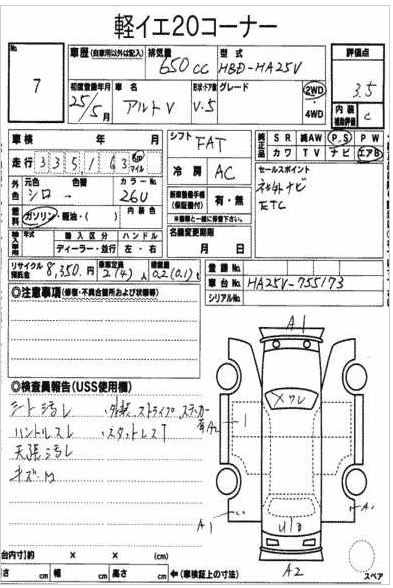 軽イエ20コーナー
No. 7
車歴 (自家用以外は記入)
排気量 650cc
型式 HBD-HA25V
評価点 3.5
初度登録年月 25/5月
車名 アルトV
形状・ドア数 V.5
グレード
2WD
・
4WD
内装補助評価 C
車検 年 月
シフト FAT
純正品 SR 満AW P.S PW
カワ TV ナビ エアB
走行 Km マイル
冷房 AC
セールスポイント
社外ナビ
ETC
外色 元色 シロ
色替
カラーNo. 26U
燃料 ガソリン・軽油・( )
内装色
新車整備手帳(保証書付) 有・無
※書類と一緒に保管下さい。
名義変更期限 月 日
年式 輸入区分 ハンドル
ディーラー・並行 左・右
リサイクル預託金 8,350円
乗車定員 2(4)人
積載量 0.2(0.1)t
登録No.
車台No. HA25V-755173
シリアルNo.
◎注意事項(修復・不具合箇所および状態等)
◎検査員報告(USS使用欄)
シート汚レ ・外装ストライプ、ステッカー
ハンドルスレ ・スタットレスT
天張汚レ
キズM
A1
メワレ
A2
A1
A1
U1B
A2
スペア
台内寸)約 × × (cm)
さ cm 幅 cm 高さ cm ←(車検証上の寸法)